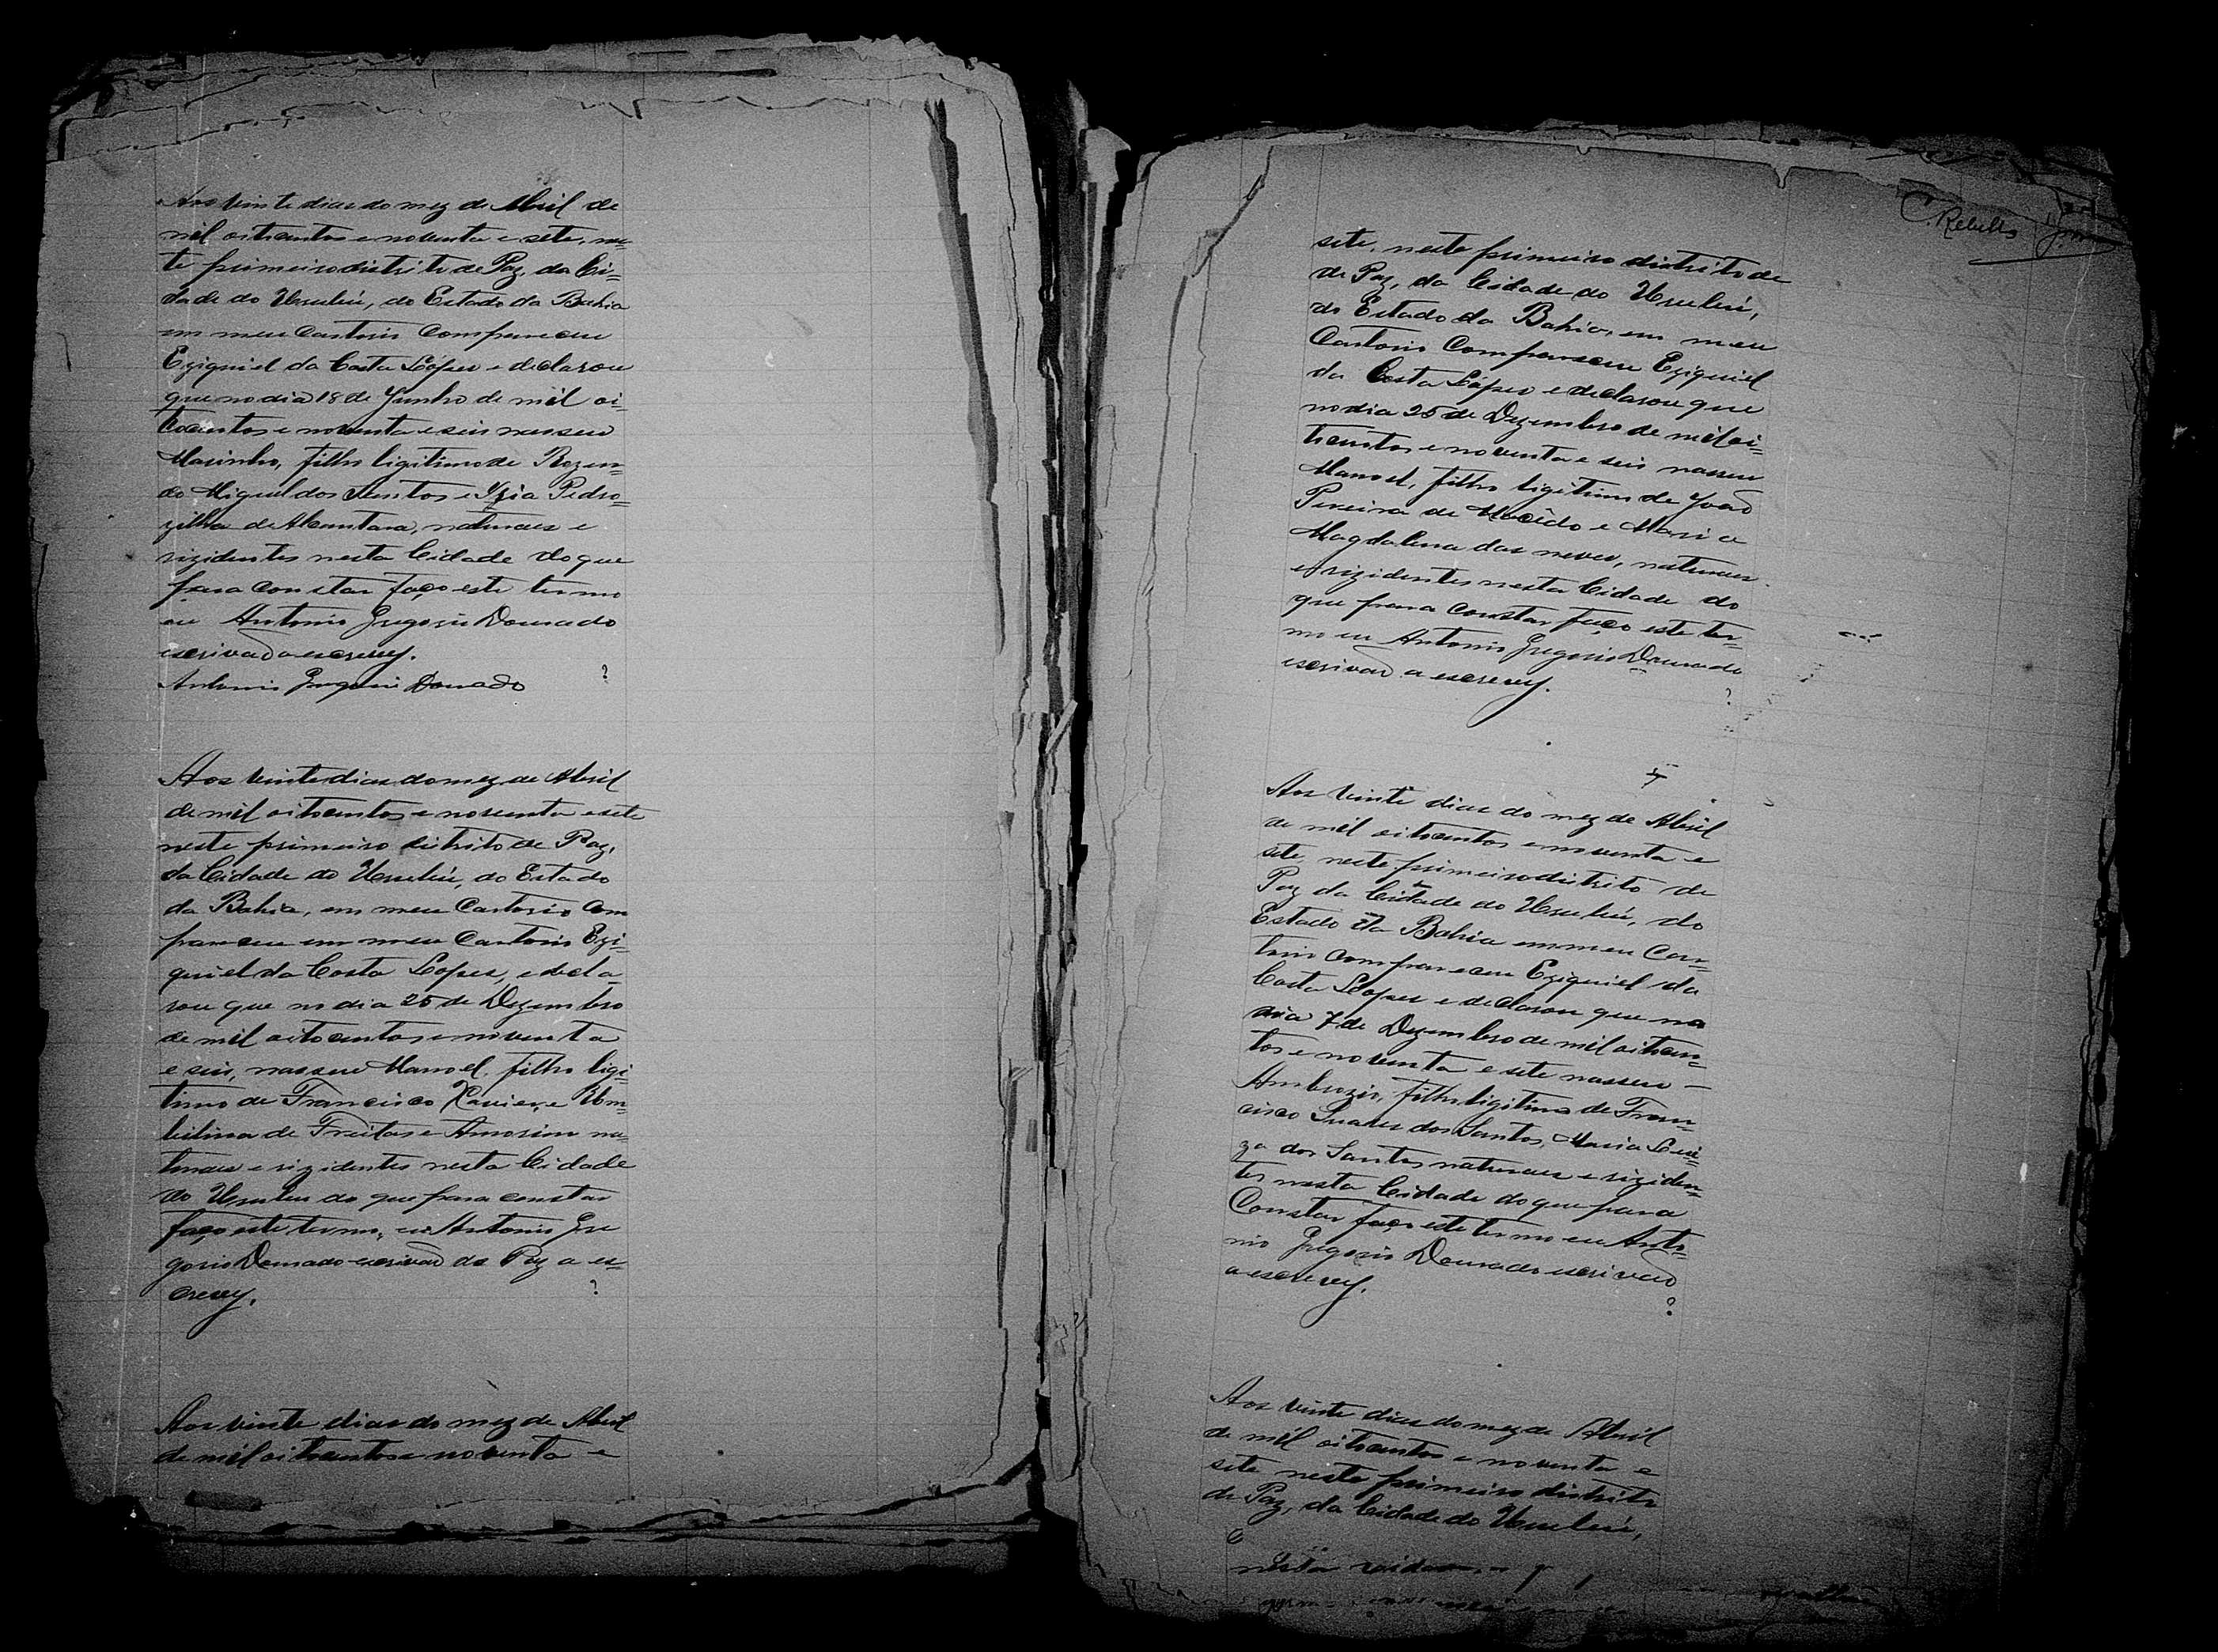 Aos vinte dias do mez de Abril de
mil oitocentos e noventa e sete, nes=
te primeiro distrito de Paz, da Ci=
dade do Urubú, do Estado da Bahia
em meu Cartorio Compareceu
Eziquiel da Costa Lópes e declarou
que no dia 18 de Junho de mil oi=
tocentos e noventa e seis nasseu
Marinho, filho ligitimo de Rozen=
do Miguel dos Santos e Pedro=
zilha de Alcantara, naturaes e
rizidentes nesta Cidade do que
para constar faço este termo
eu Antonio Gregorio Dourado
escrivaõ a escrevy.
Antonio Gregorio Dourado
Aos vinte dias do mez de Abril
de mil oitocentos e noventa e sete
neste primeiro distrito de Paz,
da Cidade do Urubú, do Estado
da Bahia, em meu Cartorio Com
pareceu em meu Cartorio Ezi=
quiel da Costa Lopes, e decla
rou que no dia 25 de Dezembro
de mil oitocentos e noventa
e seis, nasseu Manoel, filho ligi=
timo de Francisco Xavier, e Um=
bilina de Freitas e Amorim na=
turaes e rizidentes nesta Cidade
do Urubu do que para constar
faço este termo, eu Antonio Gre
gorio Dourado escrivaõ de Paz a es=
crevy.
Aos vinte dias do mez de Abril
de mil oitocentos e noventa e
C. Rebello
sete, neste primeiro distrito de
de Paz, da Cidade do Urubú,
do Estado da Bahia, em meu
Cartorio Compareceu Eziquiel
da Costa Lópes e declarou que
no dia 25 de Dezembro de mil oi=
tocentos e noventa e seis nasseu
Manoel, filho ligitimo de Joaõ
Pereira de Macêdo e Maria
Magdalena das neves, naturaes
e rizidentes nesta Cidade do
que para constar faço este ter=
mo eu Antonio Gregorio Dourado
escrivaõ a escrevy.
Aos vinte dias do mez de Abril
de mil oitocentos e noventa e
sete, neste primeiro distrito de
Paz da Cidade do Urubú, do
Estado da Bahia em meu Car=
torio compareceu Eziquiel da
Costa Lópes e declarou que no
dia 7 de Dezembro de mil oitocen=
tos e noventa e sete nasseu —
Ambrozio, filho ligitimo de Fran=
cisco Suares dos Santos, Maria Lui=
za dos Santos naturaes e riziden=
tes nesta Cidade do que para
Constar faço este termo eu Anto=
nio Gregorio Dourado escrivaõ
a escrevy.
Aos vinte dias do mez de Abril
de mil oitocentos e noventa e
sete neste primeiro distrito
de Paz, da Cidade do Urubú,